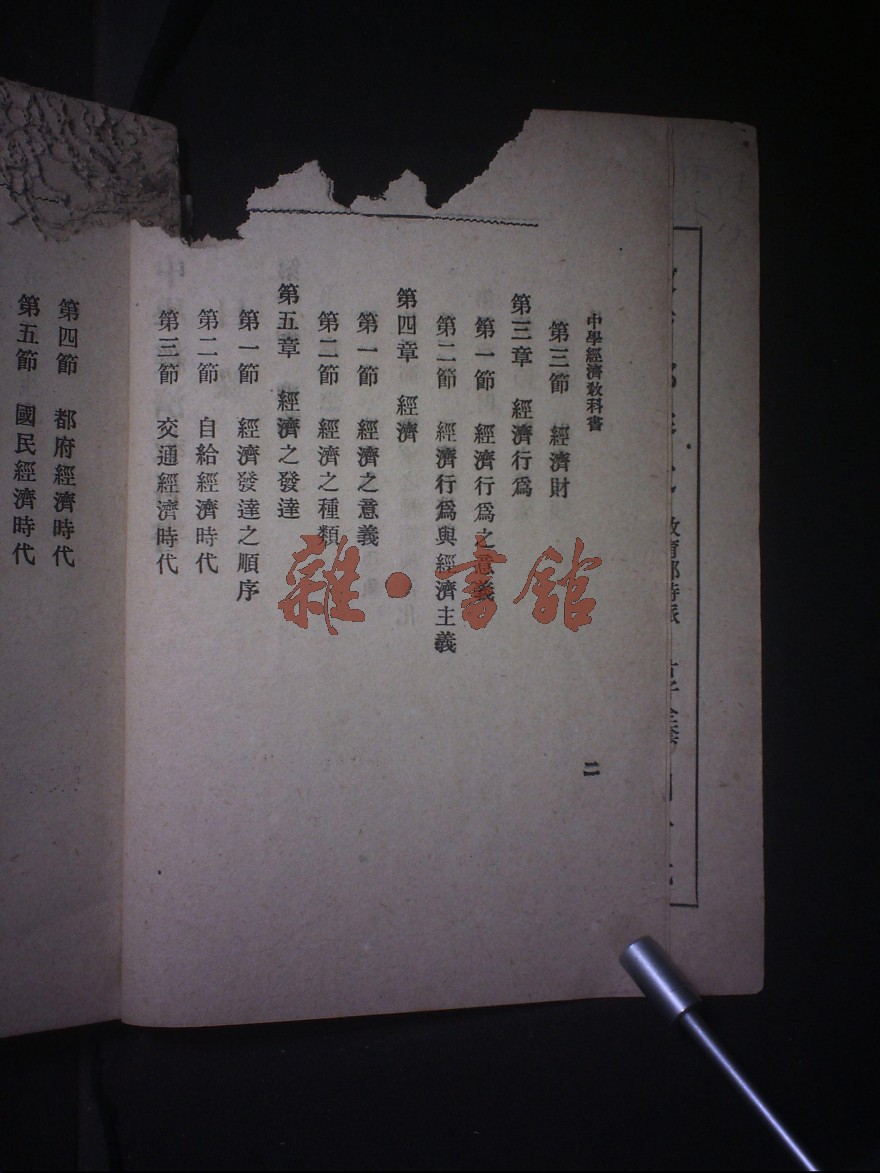 教育部特派
中學經濟教科書
第三節　經濟財
第三章　經濟行爲
第一節　經濟行爲之意義
第二節　經濟行爲與經濟主義
第四章　經濟
第一節　經濟之意義
第二節　經濟之種類
第五章　經濟之發達
第一節　經濟發達之順序
第二節　自給經濟時代
第三節　交通經濟時代
二
第四節　都府經濟時代
第五節　國民經濟時代
雜·書館